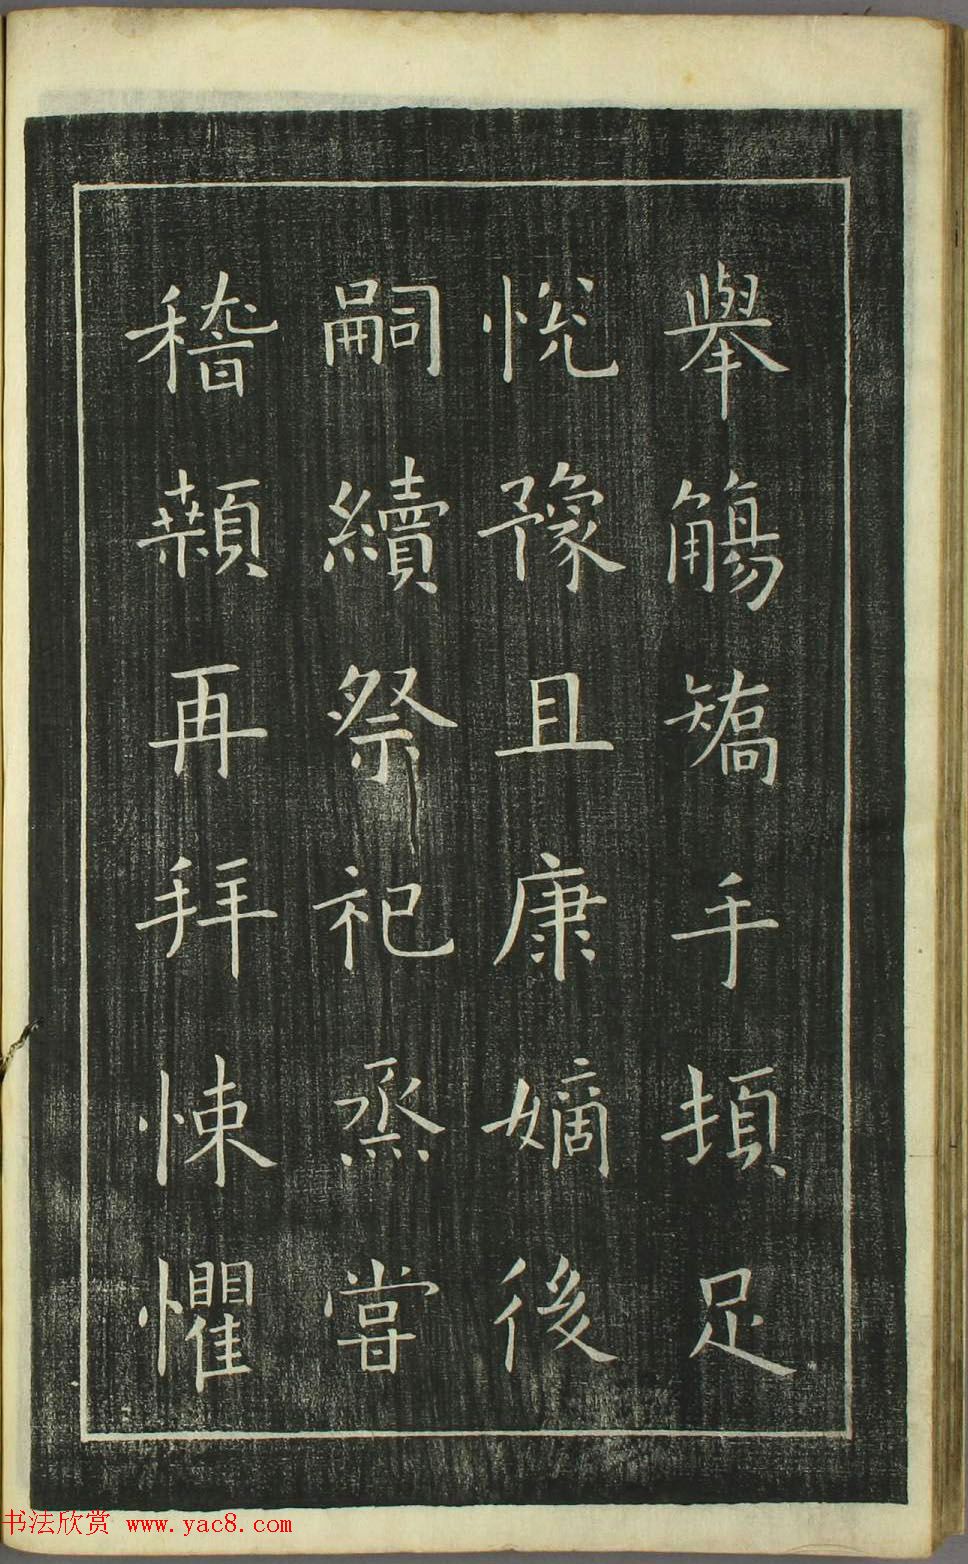 舉觴矯手頓足
悅豫且康嫡後
嗣續祭祀烝嘗
稽顙再拜悚懼
书法欣赏 www.yac8.com